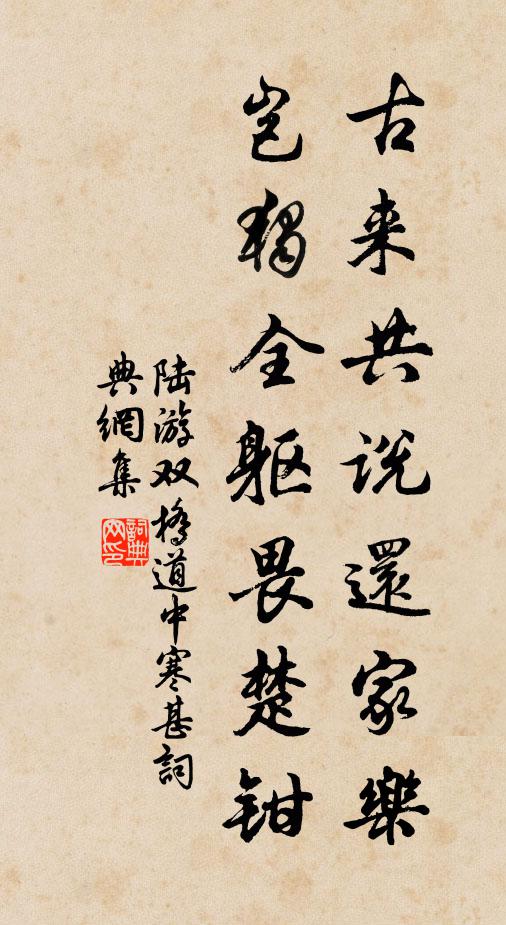 古来共说還家樂
岂獨全躯畏楚钳
陆游双橋道中寒甚詞
典網集
詞典网印